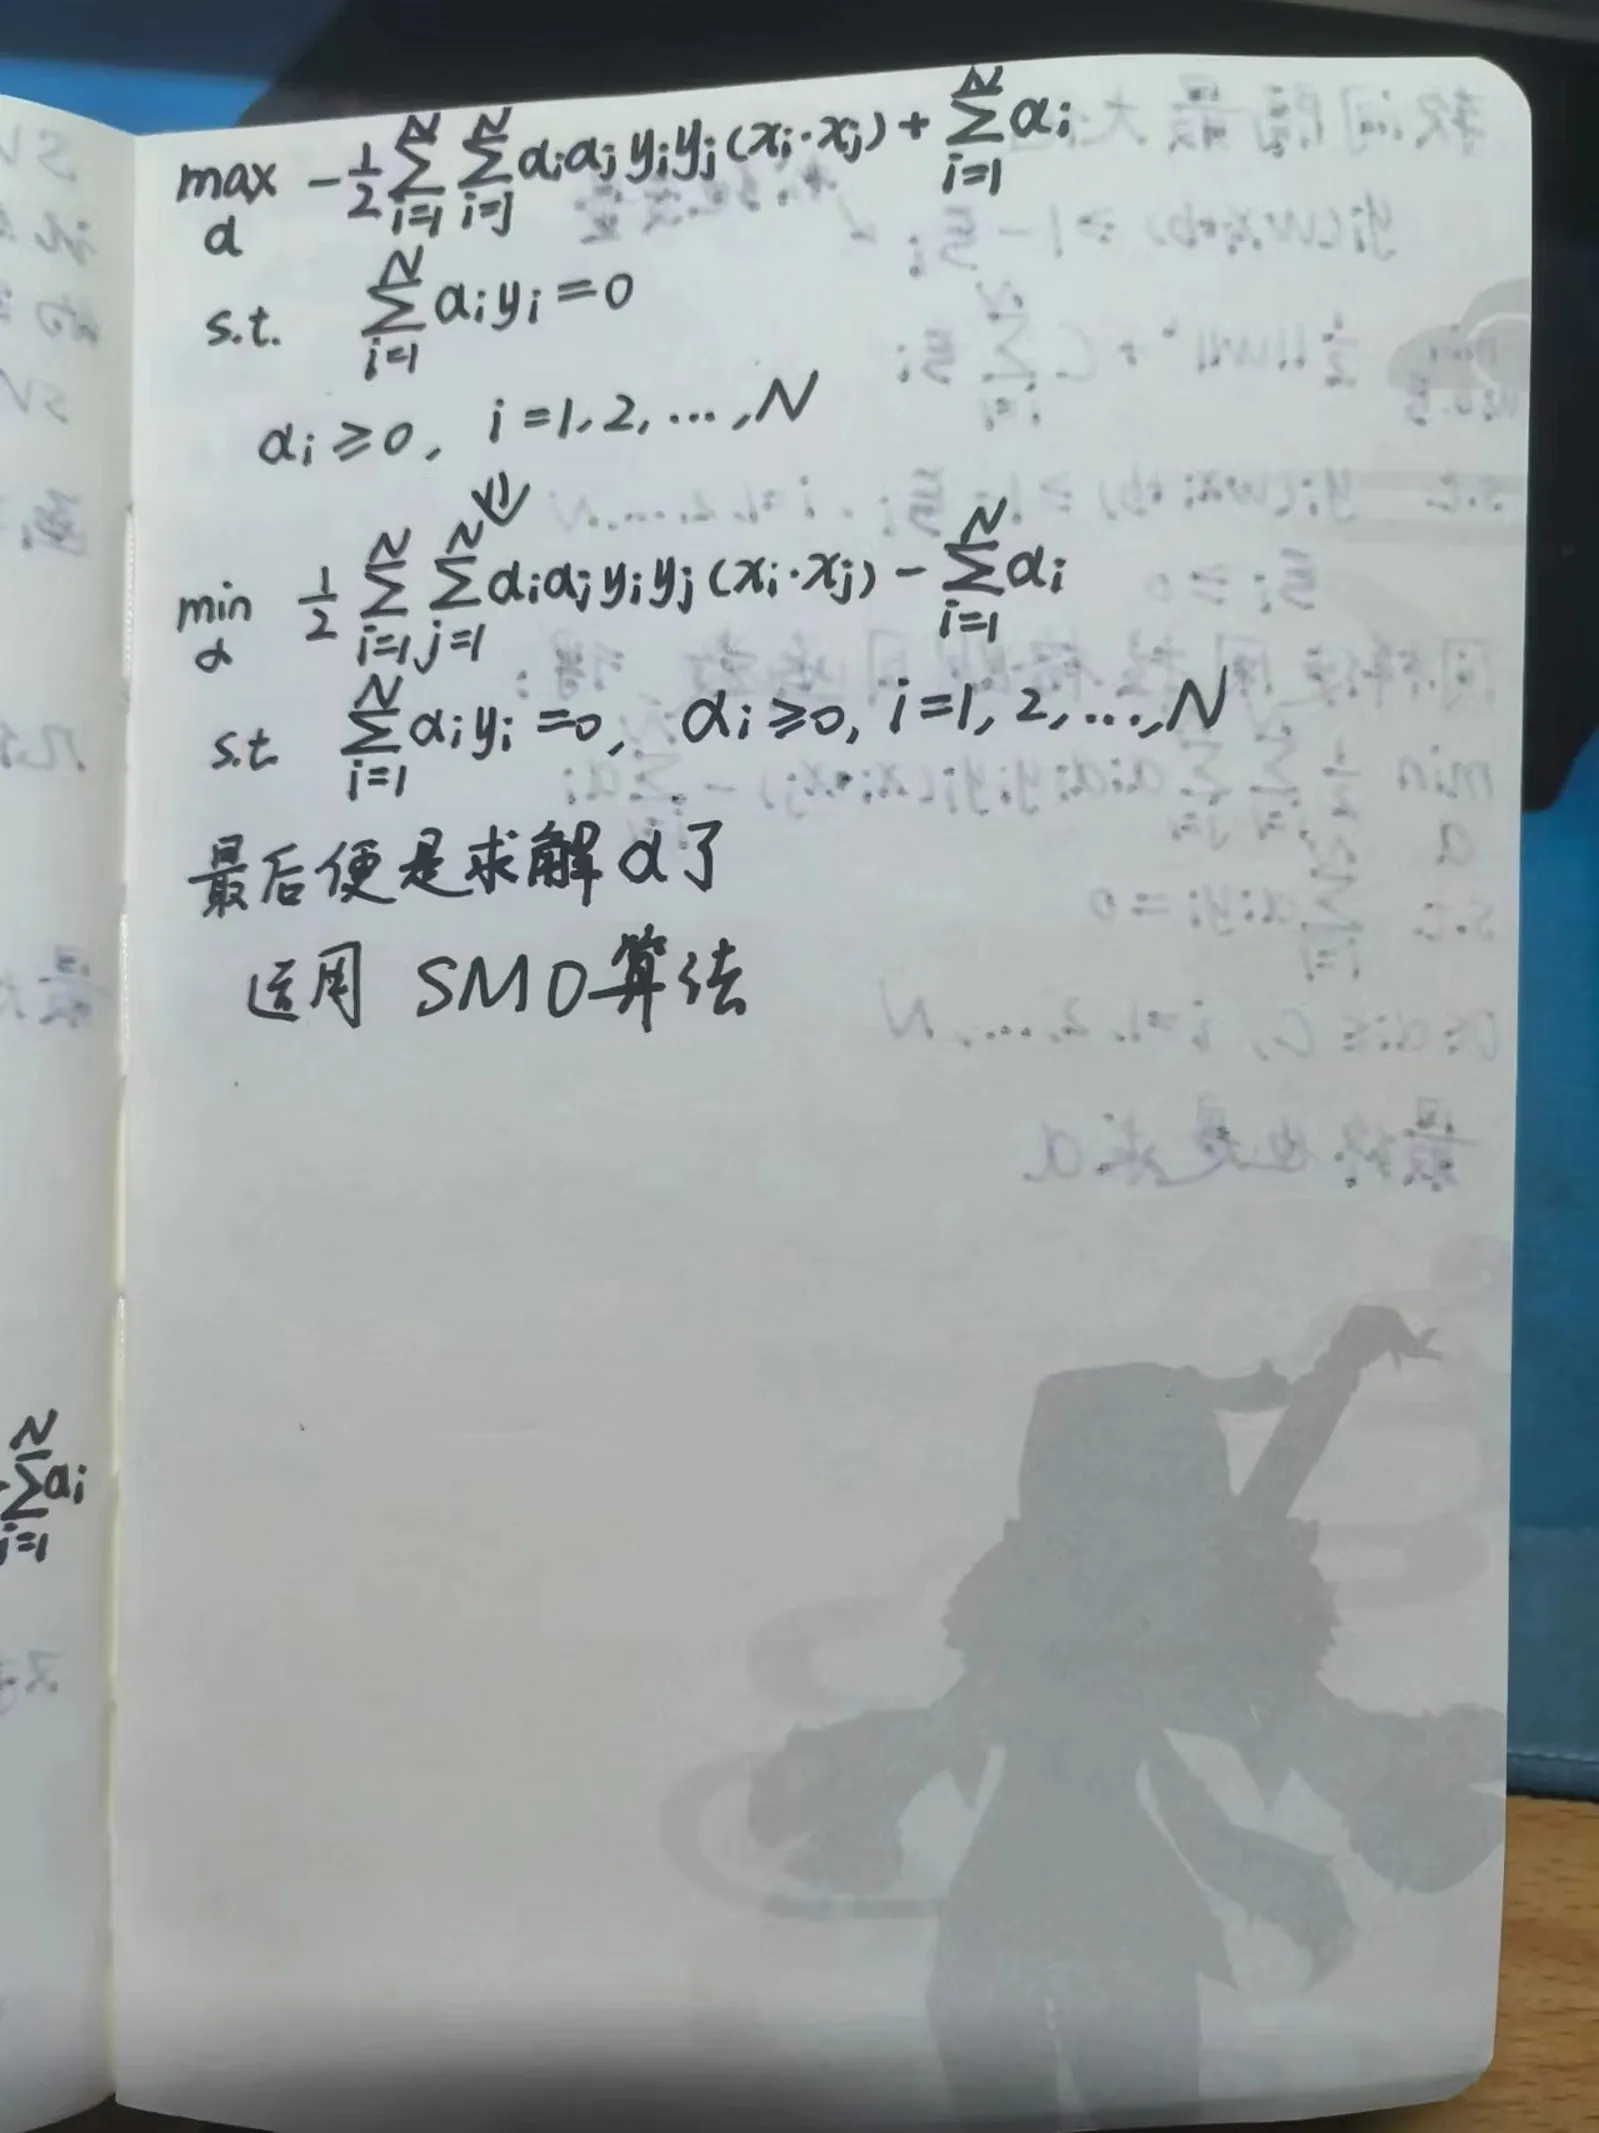 max -1/2 Σ_{i=1}^{N} Σ_{i=j}^{N} αiαj yiyj (xi·xj) + Σ_{i=1}^{N} αi
α
s.t. Σ_{i=1}^{N} αiyi = 0
αi ≥ 0, i = 1, 2, ..., N
⇓
min 1/2 Σ_{i=1}^{N} Σ_{j=1}^{N} αiαj yiyj (xi·xj) - Σ_{i=1}^{N} αi
α
s.t. Σ_{i=1}^{N} αiyi = 0, αi ≥ 0, i = 1, 2, ..., N
最后便是求解α了
运用 SMO算法
Σ_{i=1}^{N} αi